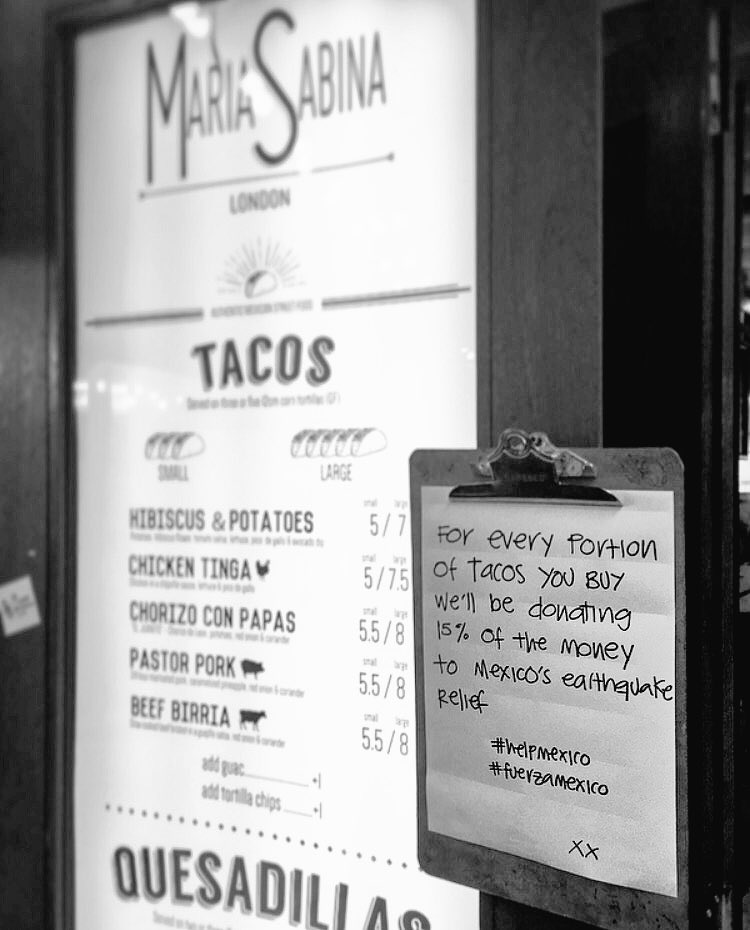 MARIA SABINA
LONDON
AUTHENTIC MEXICAN STREET FOOD
TACOS
Served on three or five 12cm corn tortillas (GF)
SMALL LARGE
small large
HIBISCUS & POTATOES 5 / 7
small large
CHICKEN TINGA 5 / 7.5
Chicken in a chipotle sauce, lettuce & pico de gallo
small large
CHORIZO CON PAPAS 5.5 / 8
small large
PASTOR PORK 5.5 / 8
small large
BEEF BIRRIA 5.5 / 8
add guac +1
add tortilla chips +1
QUESADILLAS
Served on two or
For every portion
of tacos you buy
we'll be donating
15% of the money
to Mexico's earthquake
relief
#helpmexico
#fuerzamexico
xx